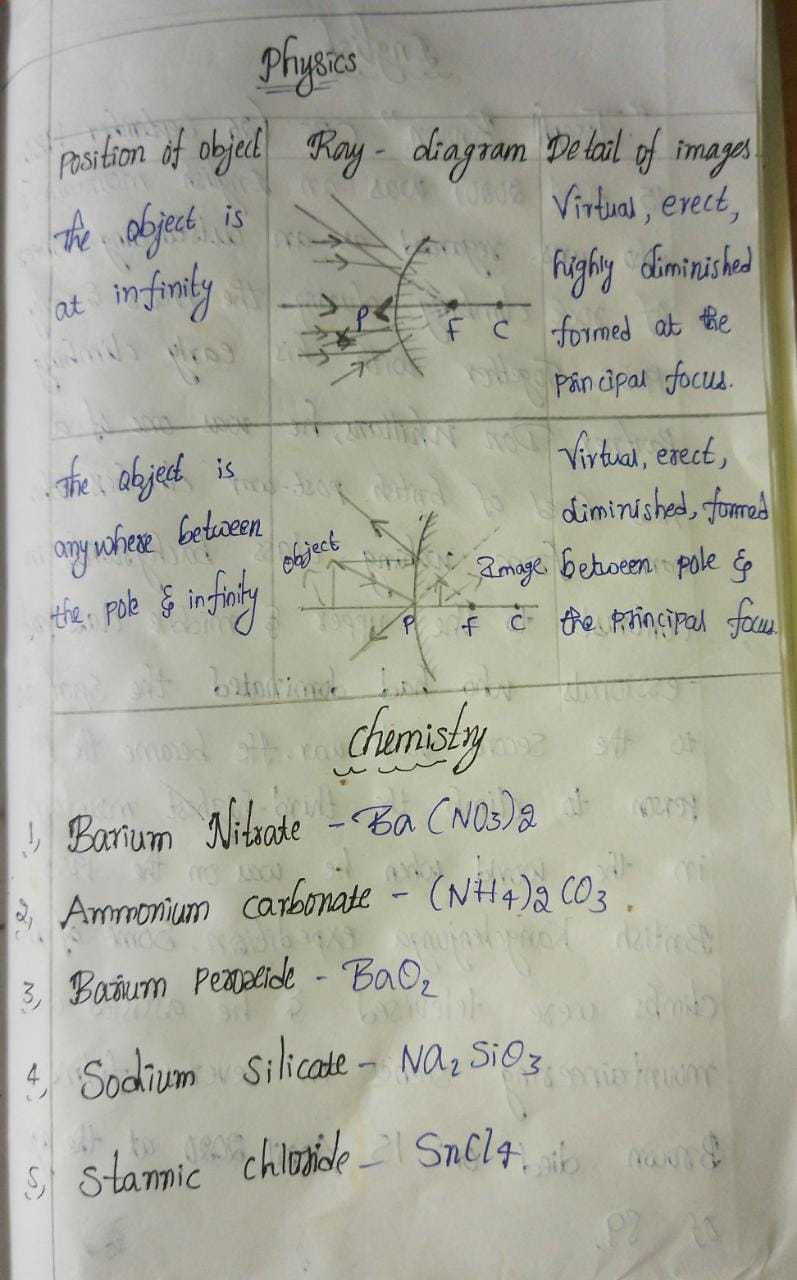 Physics
Position of object
Ray - diagram
Detail of images.
The object is
at infinity
P
F
C
Virtual, erect,
highly diminished
formed at the
principal focus.
The object is
anywhere between
the pole & infinity
object
Image
P
F
C
Virtual, erect,
diminished, formed
between pole &
the principal focus.
Chemistry
1, Barium Nitrate - Ba (NO3)2
2, Ammonium carbonate - (NH4)2 CO3.
3, Barium Peroxide - BaO2
4, Sodium silicate - Na2 SiO3
5, Stannic chloride - SnCl4.